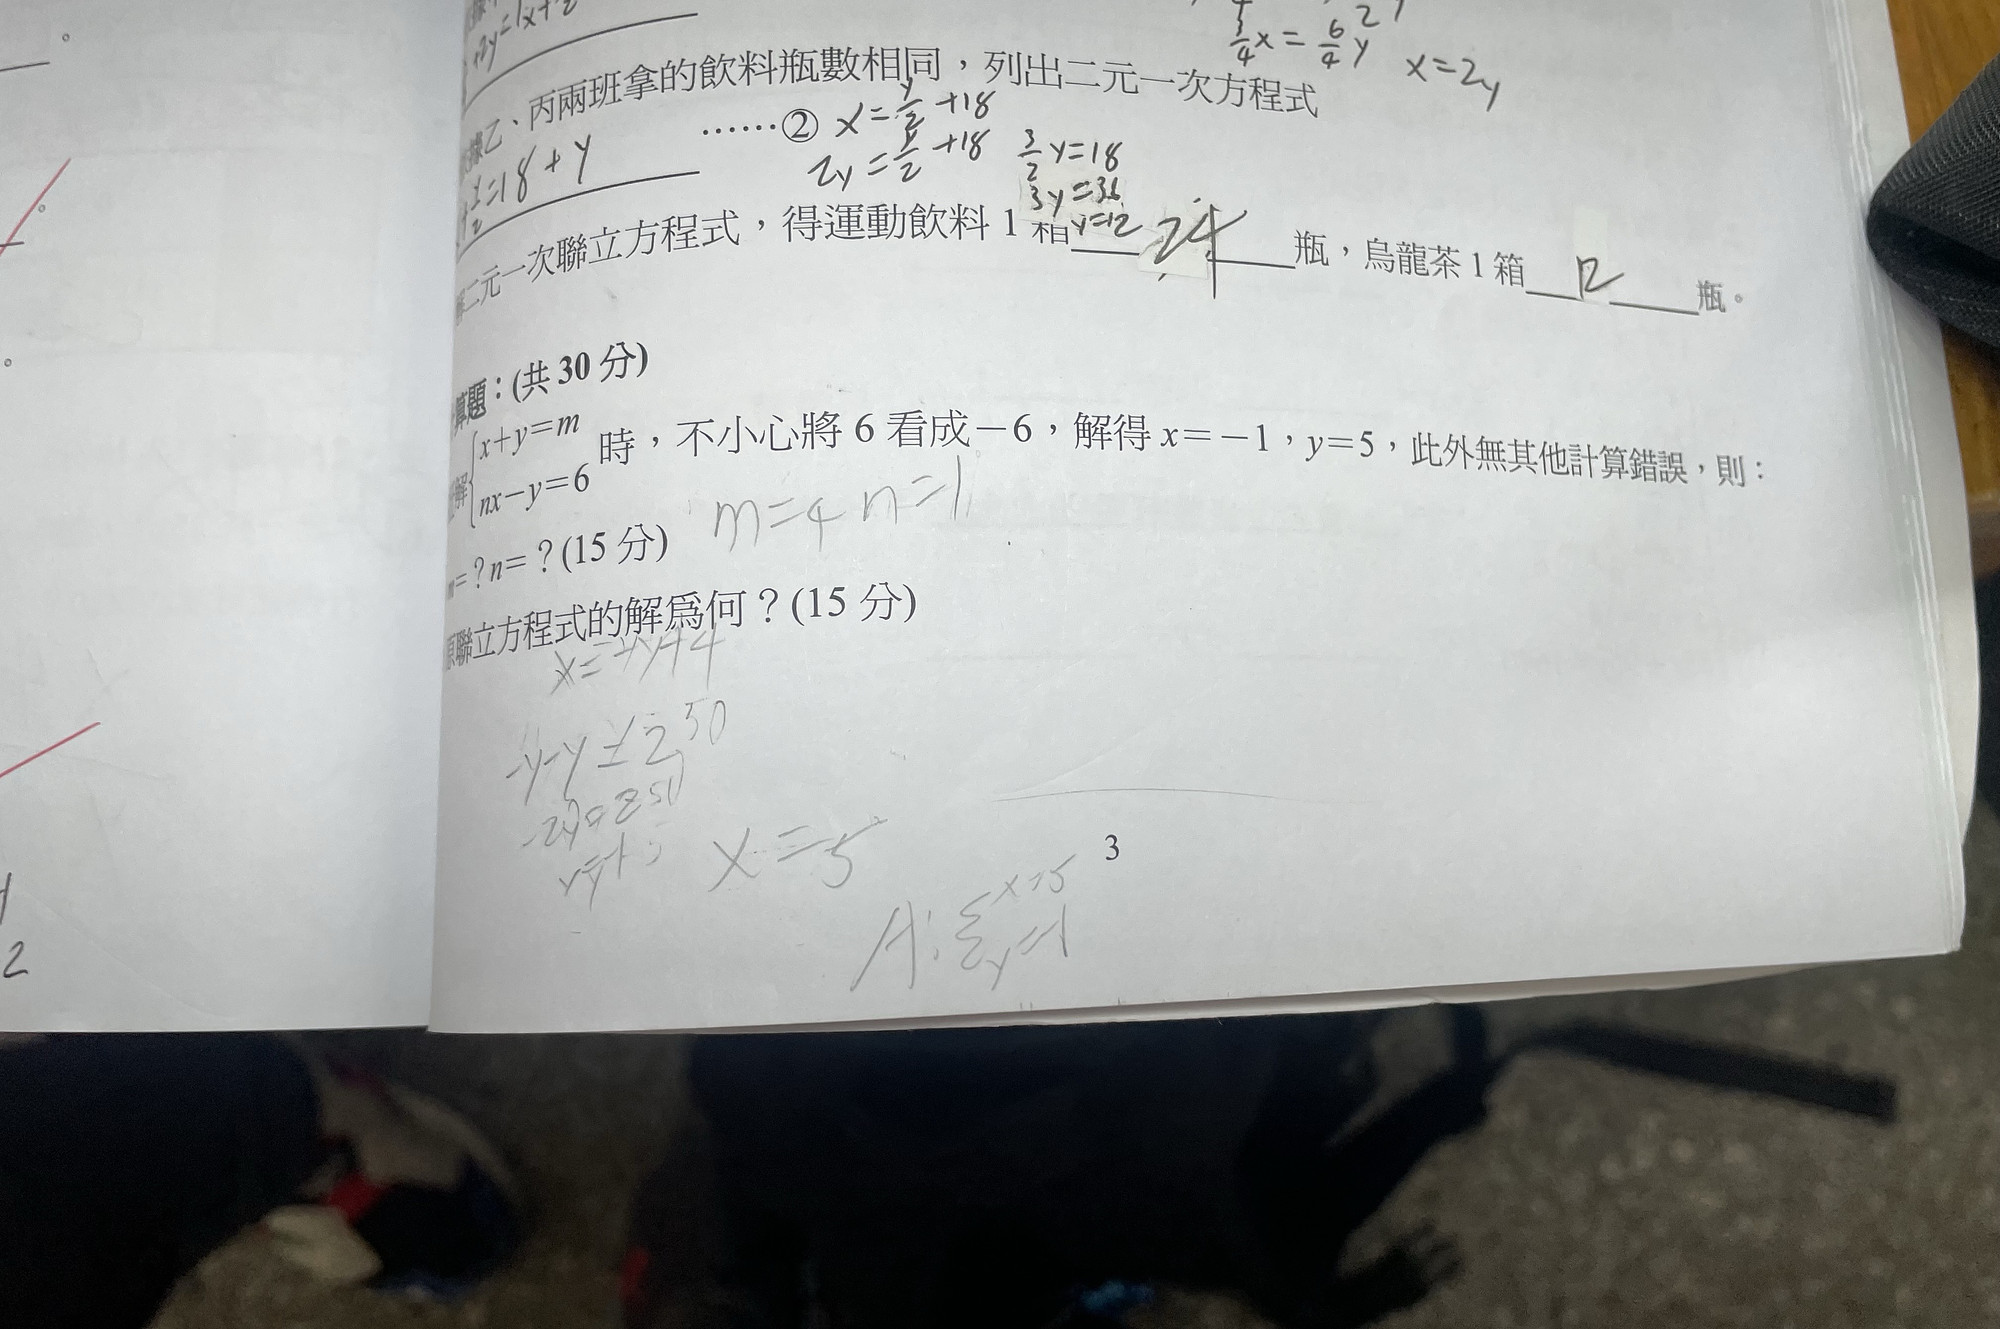 +2y=1x+2
3/4x=6/4y x=2y
據乙、丙兩班拿的飲料瓶數相同，列出二元一次方程式
+x/2=18+y ……② x=y/2+18
2y=y/2+18 3/2y=18
3y=36
y=12
二元一次聯立方程式，得運動飲料1箱 24 瓶，烏龍茶1箱 12 瓶。
算題：(共30分)
解{x+y=m nx-y=6 時，不小心將6看成－6，解得x＝－1，y＝5，此外無其他計算錯誤，則：
m=4 n=1
=？n=？(15分)
原聯立方程式的解為何？(15分)
x=-y+4
x=5
A:{x=5 y=-1
3
2